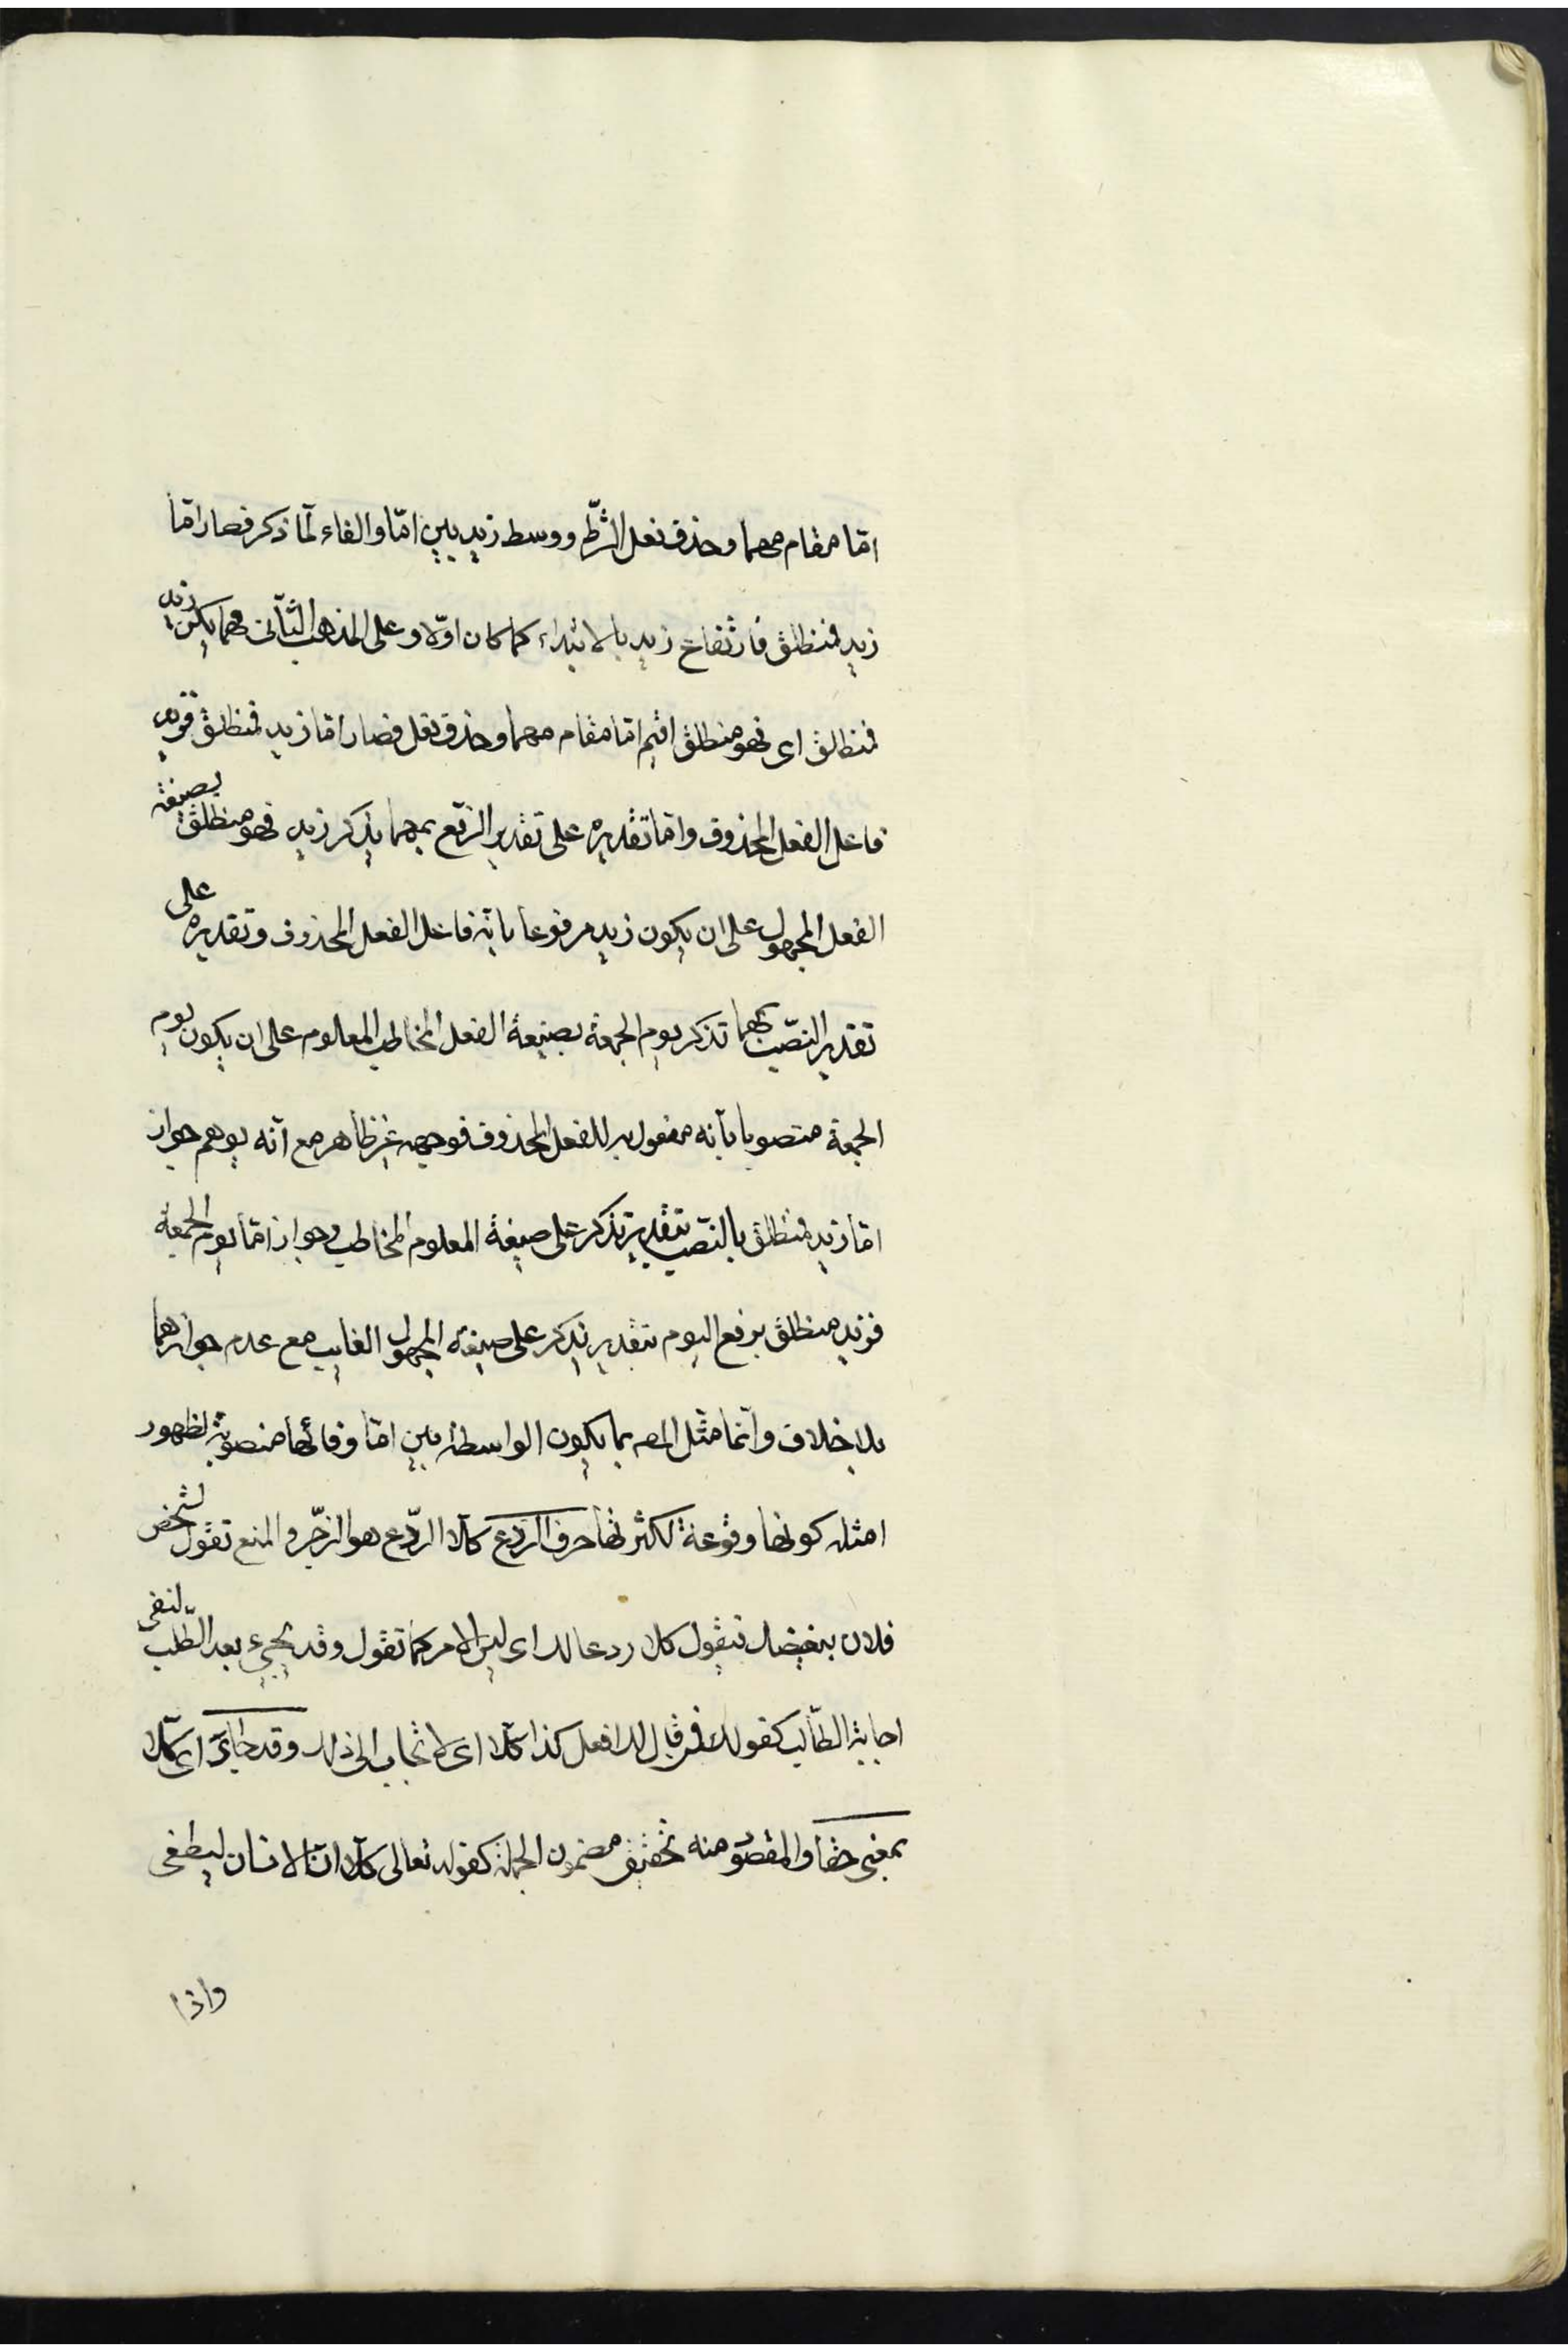 امّا مقام مهما وحذف فعل الشّرط ووسط زيد بين امّا والفاء لمّا ذكر فصار امّا
زيد فمنطلق فارتفاع زيد بالابتداء كما كان اوّلا وعلى المذهب الثّانى مهما يكن زيد
فمنطلق اى فهو منطلق اقيم امّا مقام مهما وحذف فعل فصار امّا زيد فمنطلق فزيد
فاعل الفعل المحذوف وامّا تقديره على تقدير الرّفع بمهما يذكر زيد فهو منطلق بصيغة
الفعل المجهول على ان يكون زيد مرفوعا بانّه فاعل الفعل المحذوف وتقديره على
تقدير النّصب بمهما تذكر يوم الجمعة بصيغة الفعل المخاطب المعلوم على ان يكون يوم
الجمعة منصوبا بأنه مفعول به للفعل المحذوف فوجهه غير ظاهر مع أنه يوهم جواز
امّا زيد فمنطلق بالنّصب بتقدير تذكر على صيغة المعلوم المخاطب وجواز امّا يوم الجمعة
فزيد منطلق برفع اليوم بتقدير يذكر على صيغة المجهول الغايب مع عدم جوازهما
بلا خلاف وانّما مثّل المصـ بما يكون الواسطة بين امّا وفائها منصوبة لظهور
امثلة كونها مرفوعة لكثرتها حرف الرّدع كلّا الرّدع هو الزّجر والمنع تقول لشخص
فلان يبغضك فيقول كلا ردعا لك اى ليس الامر كما تقول وقد يجيء بعد الطّلب لنفى
اجابة الطّالب كقولك لمن قال لك افعل كذا كلّا اى لا تجاب الى ذلك وقد جاء اى كلّا
بمعنى حقّا والمقصود منه تحقيق مضمون الجملة كقوله تعالى كلّا انّ الانسان ليطغى
واذا